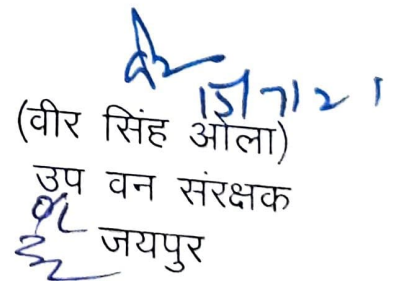 15/7/21
(वीर सिंह ओला)
उप वन संरक्षक
जयपुर